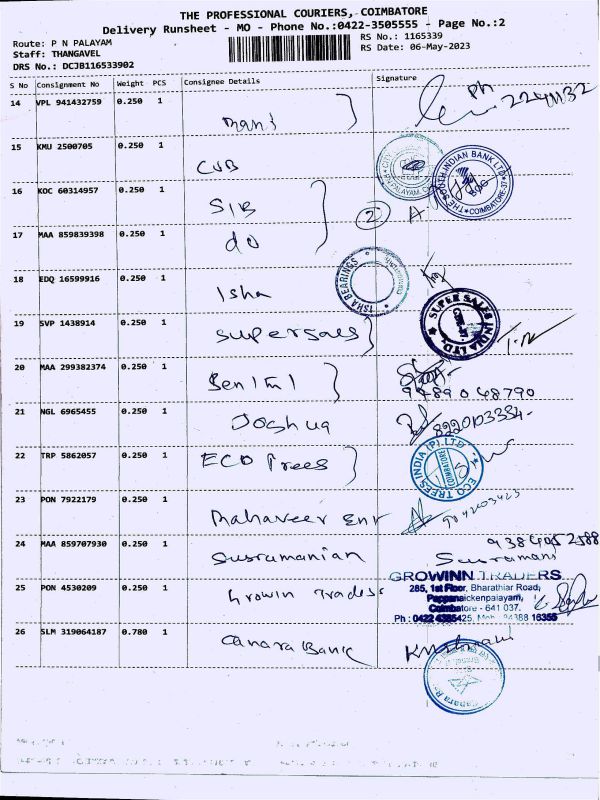 THE PROFESSIONAL COURIERS, COIMBATORE
Delivery Runsheet - MO - Phone No.:0422-3505555 - Page No.:2
Route: P N PALAYAM
Staff: THANGAVEL
DRS No.: DCJB116533902
RS No.: 1165339
RS Date: 06-May-2023
S No Consignment No Weight PCS Consignee Details Signature
14 VPL 941432759 0.250 1
Mani
Ph
15 KMU 2500705 0.250 1
CUB
THE SOUTH INDIAN BANK LTD
COIMBATORE-37
16 KOC 60314957 0.250 1
SIB
2
17 MAA 859839398 0.250 1
do
18 EDQ 16599916 0.250 1
Isha
ISHA BEARINGS
19 SVP 1438914 0.250 1
Supersales
SUPER SALES INDIA LTD.
20 MAA 299382374 0.250 1
9489048790
21 NGL 6965455 0.250 1
Joshua
22 TRP 5862057 0.250 1
ECO Trees
ECO TREES INDIA (P) LTD
COIMBATORE
23 PON 7922179 0.250 1
Mahaveer Ent
24 MAA 859707930 0.250 1
Susramanian
25 PON 4530209 0.250 1
Growin Traders
GROWINN TRADERS
285, 1st Floor, Bharathiar Road,
Pappanaickenpalayam,
Coimbatore - 641 037.
26 SLM 319064187 0.780 1
Canara Bank